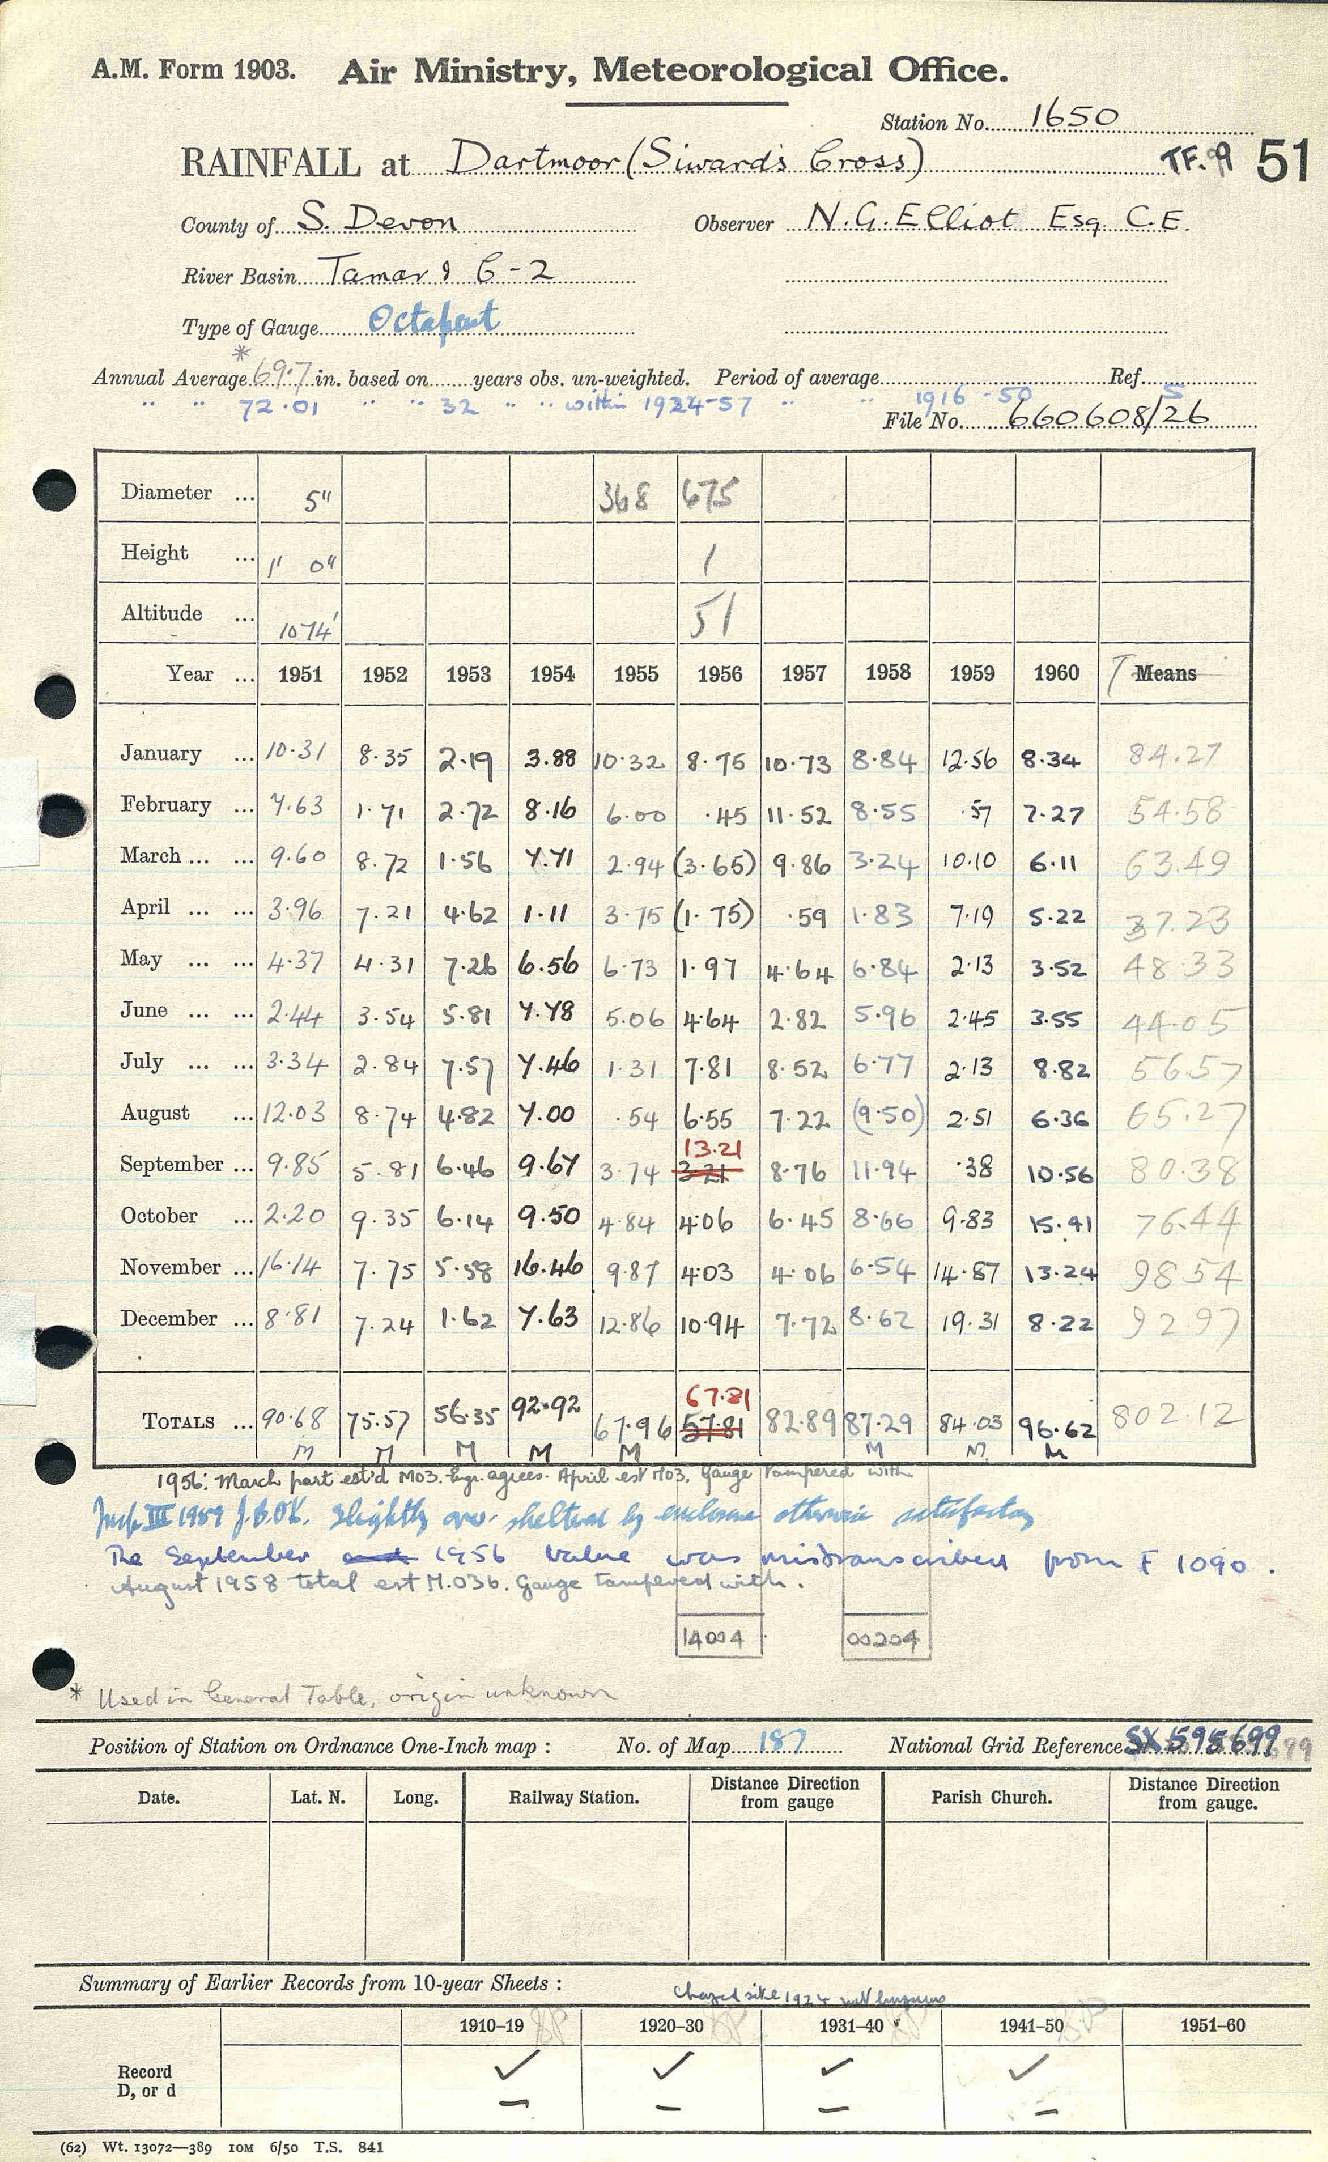 A.M. Form 1903. Air Ministry, Meteorological Office.
Station No. 1650
RAINFALL at Dartmoor (Siward's Cross) TF.99 51
County of S. Devon Observer N.G. Elliot Esq. C.E.
River Basin Tamar & C-2
Type of Gauge Octapent
*
Annual Average 69.7 in. based on years obs. un-weighted. Period of average Ref.
" " 72.01 " " 32 " " within 1924-57 " " 1916-50 5
File No. 660608/26
Diameter ... 5" 368 675
Height ... 1' 0" 1
Altitude ... 1074' 51
Year ... 1951 1952 1953 1954 1955 1956 1957 1958 1959 1960 T Means
January ... 10.31 8.35 2.19 3.88 10.32 8.75 10.73 8.84 12.56 8.34 84.27
February ... 7.63 1.71 2.72 8.16 6.00 .45 11.52 8.55 .57 7.27 54.58
March ... ... 9.60 8.72 1.56 7.71 2.94 (3.65) 9.86 3.24 10.10 6.11 63.49
April ... ... 3.96 7.21 4.62 1.11 3.75 (1.75) .59 1.83 7.19 5.22 37.23
May ... ... 4.37 4.31 7.26 6.56 6.73 1.97 4.64 6.84 2.13 3.52 48.33
June ... ... 2.44 3.54 5.81 7.78 5.06 4.64 2.82 5.96 2.45 3.55 44.05
July ... ... 3.34 2.84 7.57 7.46 1.31 7.81 8.52 6.77 2.13 8.82 56.57
August ... 12.03 8.74 4.82 7.00 .54 6.55 7.22 (9.50) 2.51 6.36 65.27
13.21
September ... 9.85 5.81 6.46 9.67 3.74 3.21 8.76 11.94 .38 10.56 80.38
October ... 2.20 9.35 6.14 9.50 4.84 4.06 6.45 8.66 9.83 15.41 76.44
November ... 16.14 7.75 5.58 16.46 9.87 4.03 4.06 6.54 14.87 13.24 98.54
December ... 8.81 7.24 1.62 7.63 12.86 10.94 7.72 8.62 19.31 8.22 92.97
67.81
TOTALS ... 90.68 75.57 56.35 92.92 67.96 57.81 82.89 87.29 84.03 96.62 802.12
M M M M M M M M
1956: March part est'd M03. Engr. agrees. April est M03. Gauge tampered with
Insp. III 1959 Slightly over-sheltered by enclosure otherwise satisfactory
The September and 1956 value was mistranscribed from F 1090.
August 1958 total est M.03b. Gauge tampered with.
14004 00204
* Used in General Table, origin unknown
Position of Station on Ordnance One-Inch map : No. of Map 187 National Grid Reference SX 595699
Date. Lat. N. Long. Railway Station. Distance Direction from gauge Parish Church. Distance Direction from gauge.
Summary of Earlier Records from 10-year Sheets :
Changed site 1924
1910–19 1920–30 1931–40 1941–50 1951–60
Record ✓ ✓ ✓ ✓
D, or d – – – –
(62) Wt. 13072—389 10M 6/50 T.S. 841